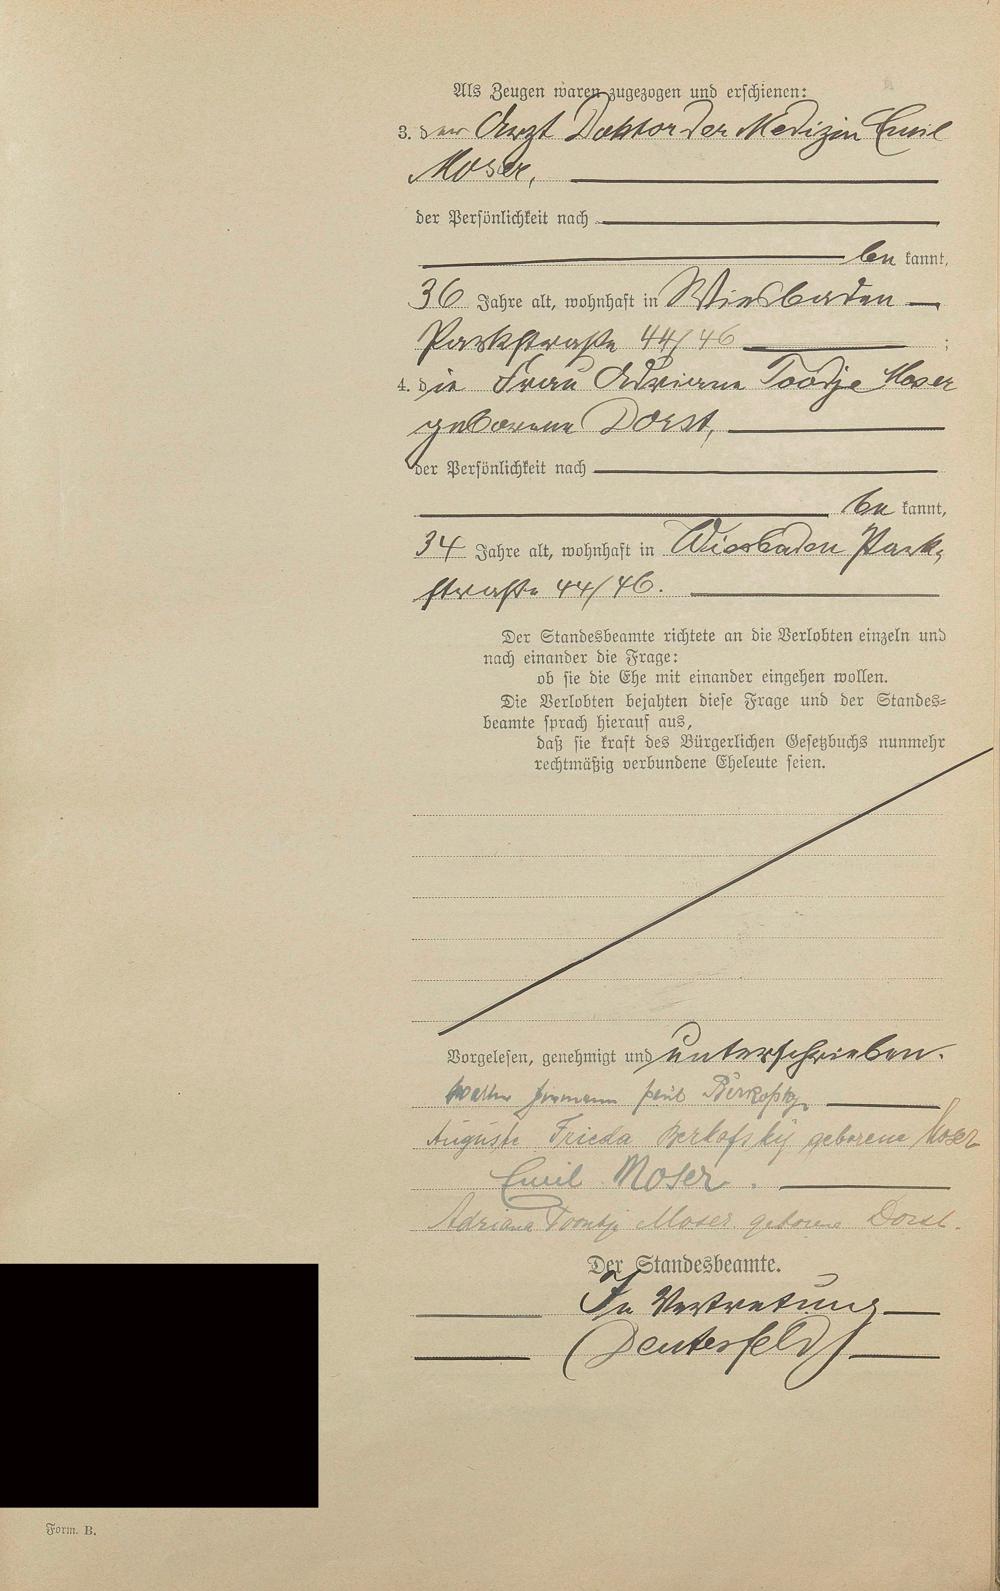 Als Zeugen waren zugezogen und erschienen:
3. der Arzt Doktor der Medizin Emil
Moser,
der Persönlichkeit nach
be kannt,
36 Jahre alt, wohnhaft in Wiesbaden
Parkstraße 44/46 ;
4. die Frau Adriane Toodje Moser
geborene Dorst,
der Persönlichkeit nach
be kannt,
34 Jahre alt, wohnhaft in Wiesbaden Park-
straße 44/46.
Der Standesbeamte richtete an die Verlobten einzeln und
nach einander die Frage:
ob sie die Ehe mit einander eingehen wollen.
Die Verlobten bejahten diese Frage und der Standes-
beamte sprach hierauf aus,
daß sie kraft des Bürgerlichen Gesetzbuchs nunmehr
rechtmäßig verbundene Eheleute seien.
Vorgelesen, genehmigt und unterschrieben.
Walter Hermann Paul Berkofsky
Auguste Frieda Berkofsky geborene Moser
Emil Moser.
Adriana Toontje Moser geborene Dorst.
Der Standesbeamte.
In Vertretung
Form. B.